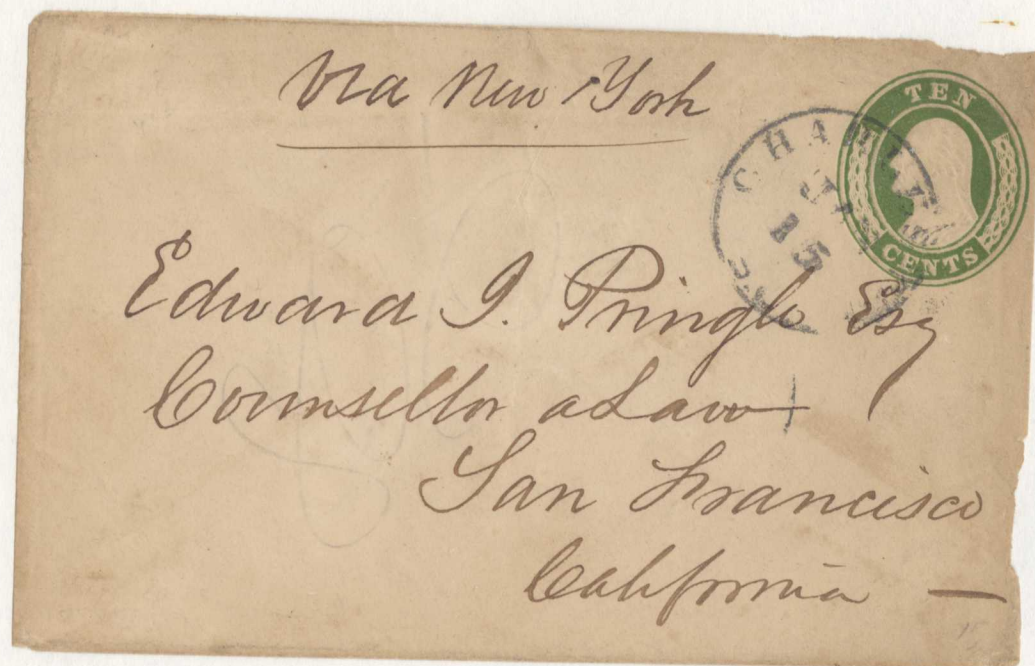 Via New York
TEN
CENTS
15
Edward J. Pringle Esq
Counsellor a Law
San Francisco
California —